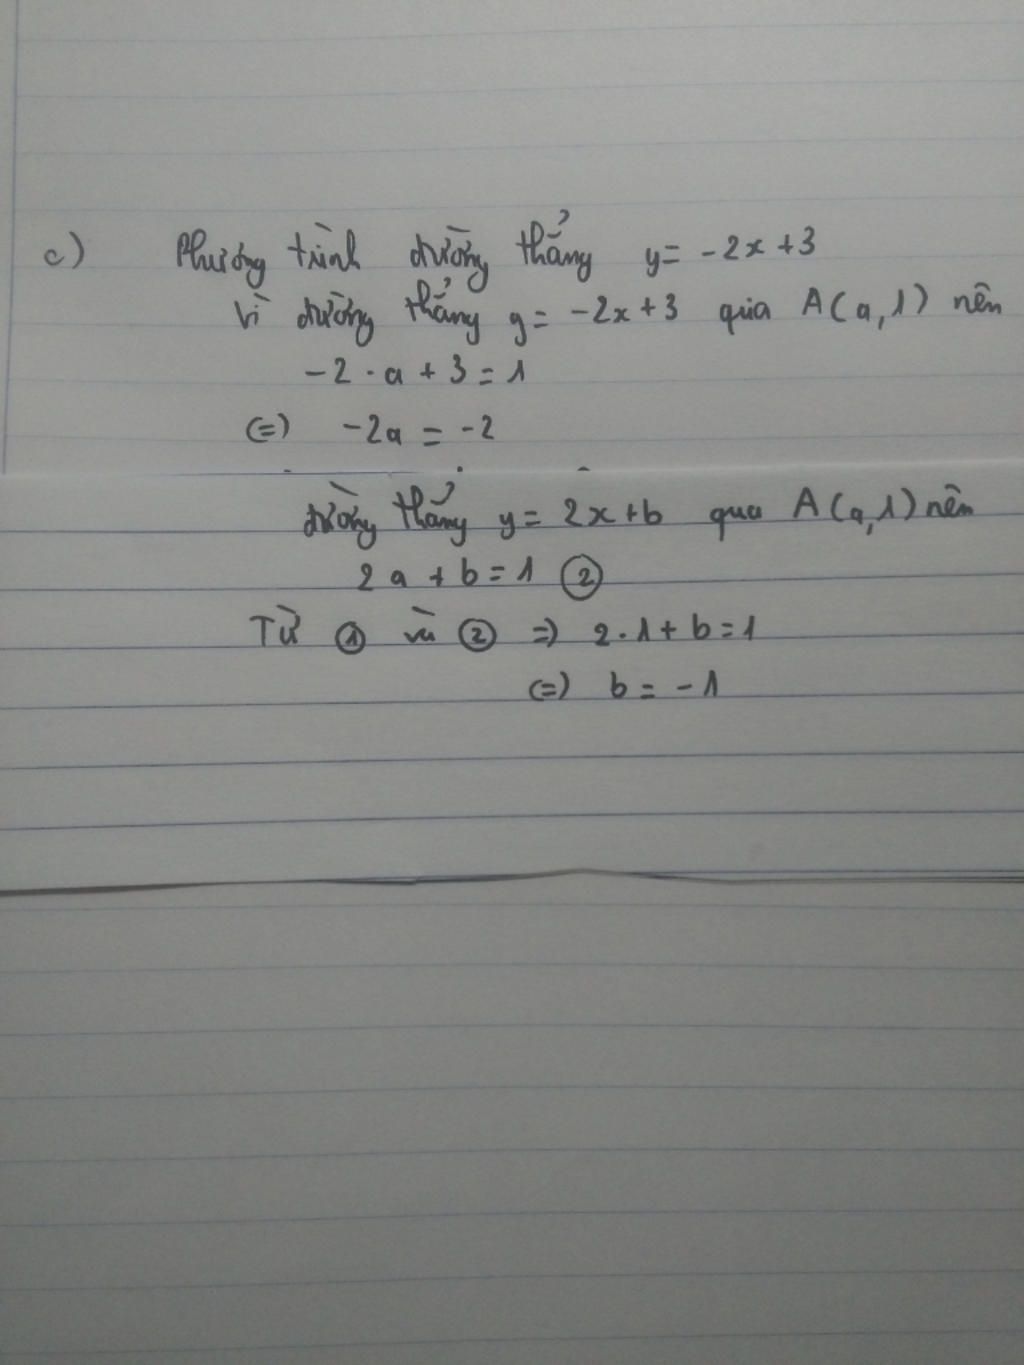 c) Phương trình đường thẳng y = -2x + 3
Vì đường thẳng y = -2x + 3 qua A(a,1) nên
-2 · a + 3 = 1
(=) -2a = -2
đường thẳng y = 2x + b qua A(a,1) nên
2a + b = 1 ②
Từ ① và ② =) 2·1 + b = 1
(=) b = -1